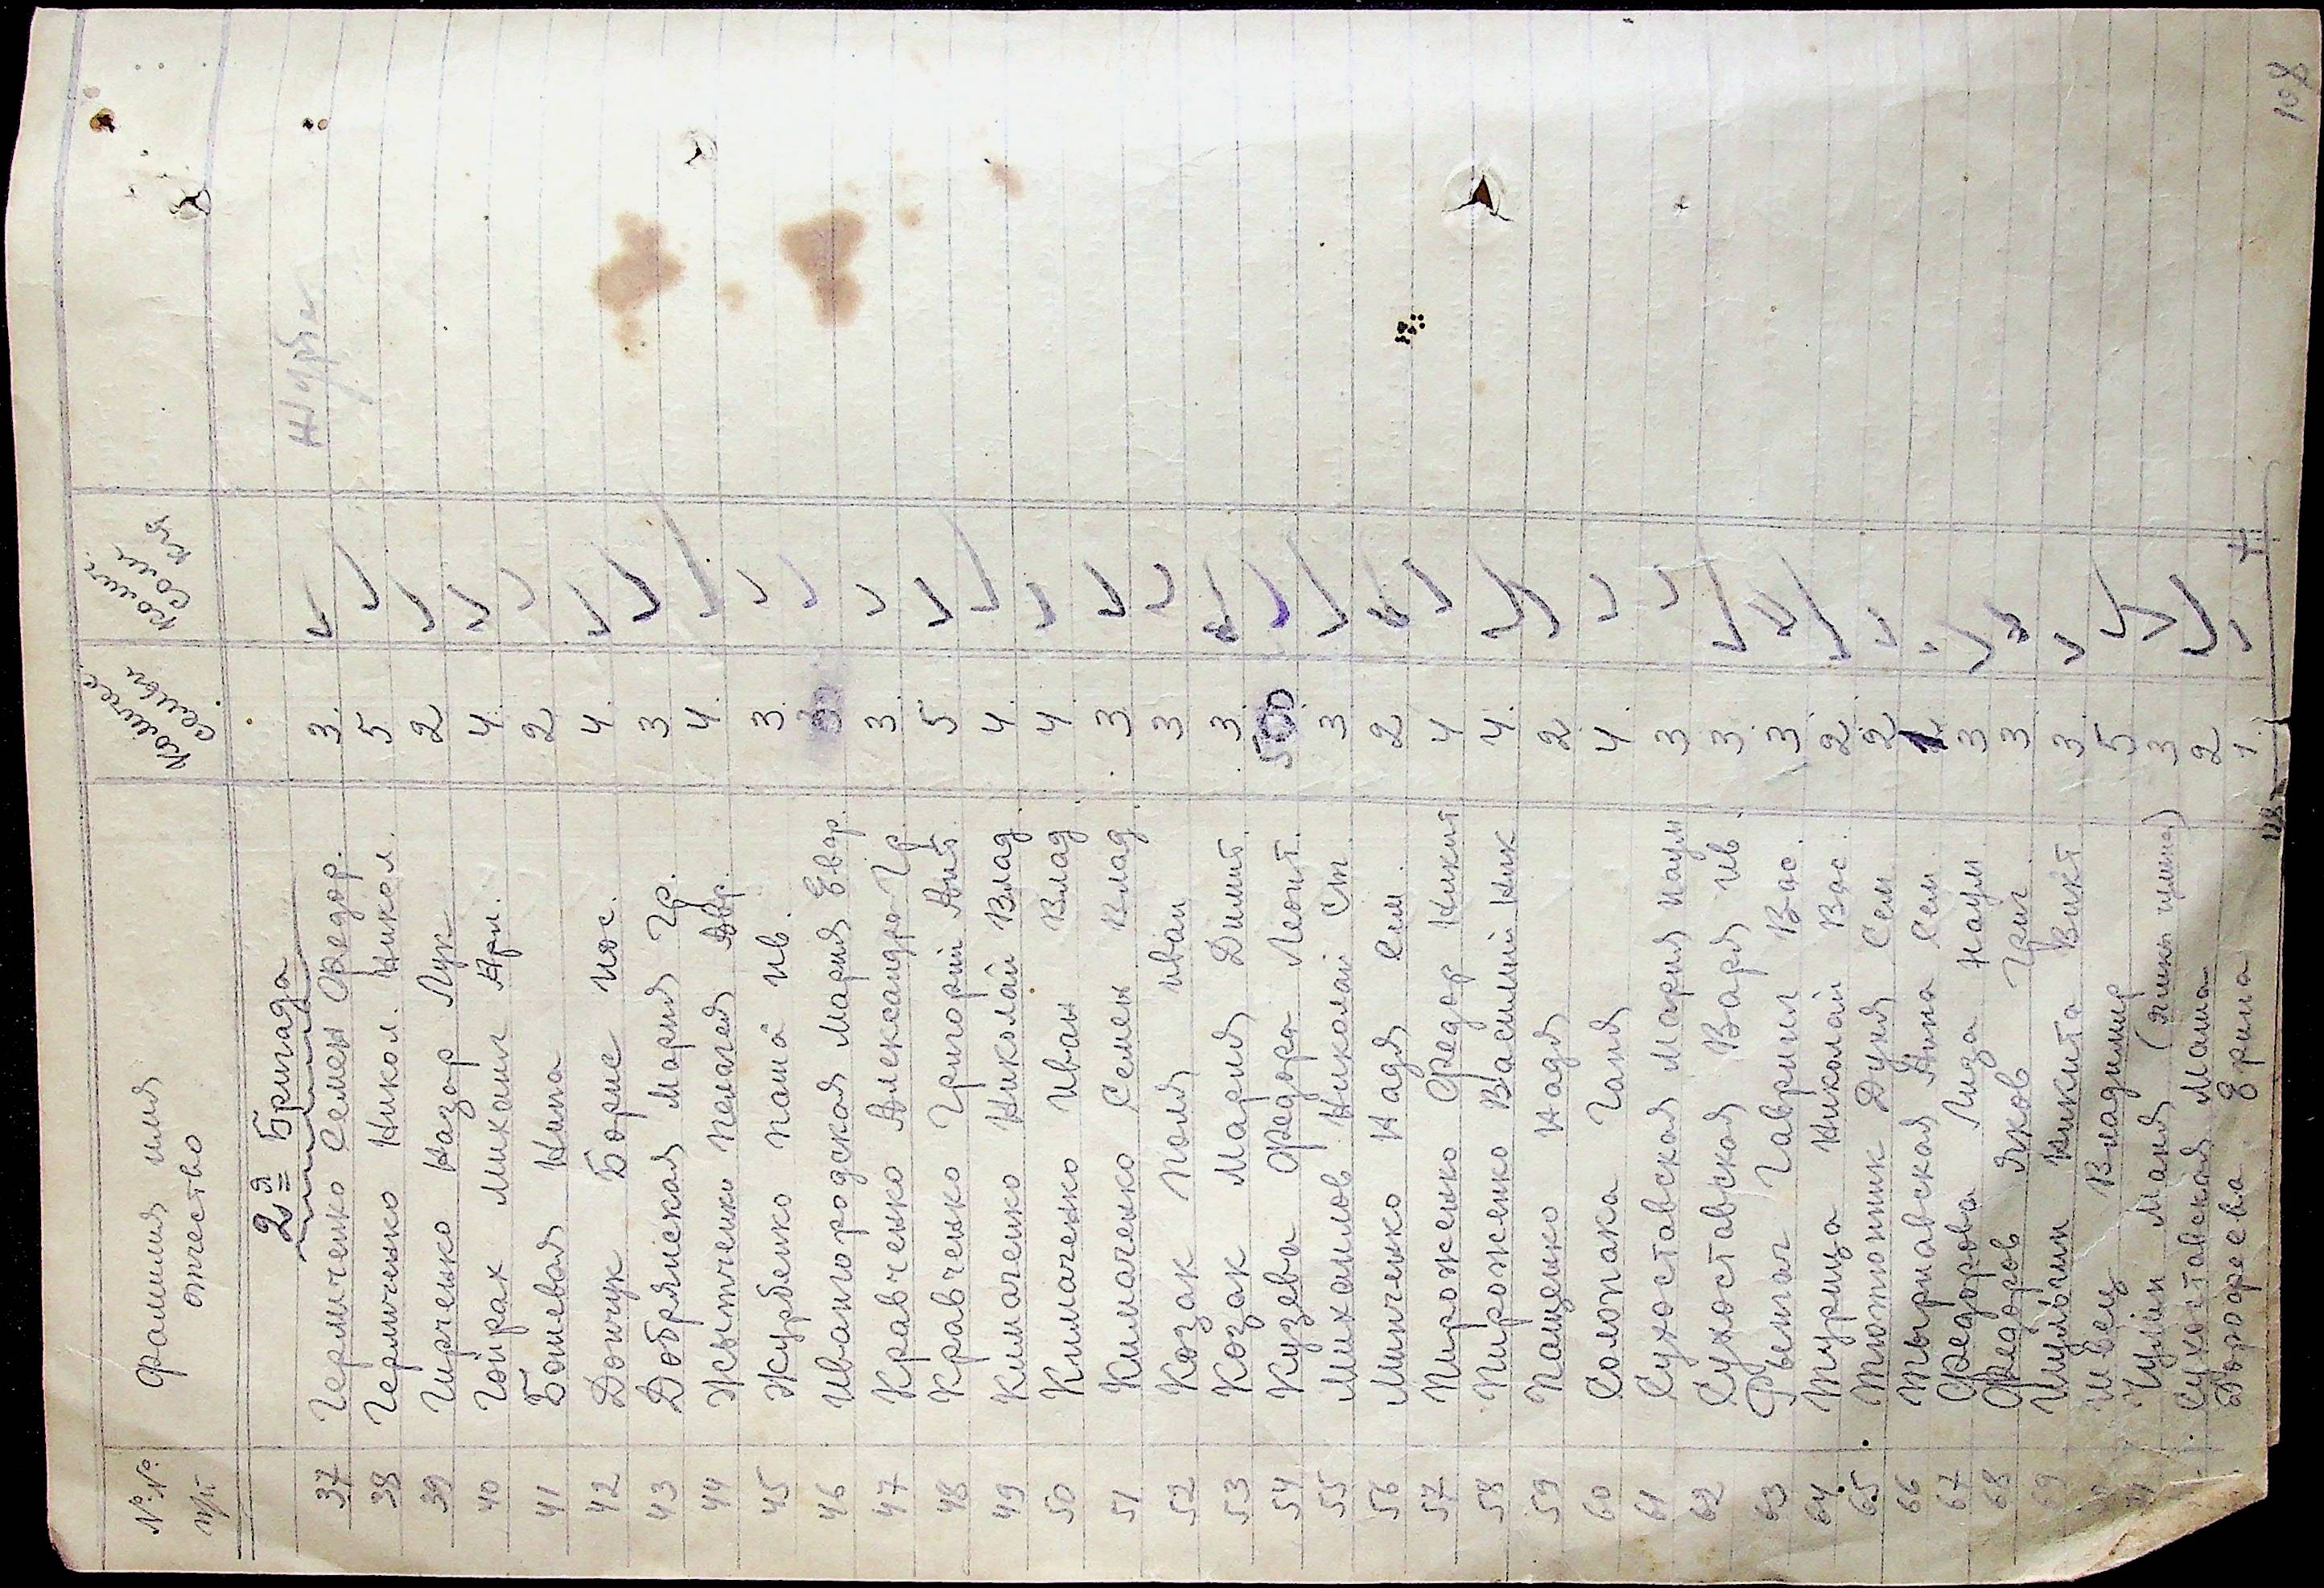 № № п/п Фамилия имя отчество Количес семьи Колич
2я Бригада
37 Чермченко Семен Федор. 3.
38 Чермченко Никол. Никол. 5
39 Гирченко Назар Лук 2
40 Гойрах Михаил 4.
41 Боневая Нина 2
42 Дончук Борис Иос. 4.
43 Добрянская Мария Гр. 3
44 Жытченко Пелагея Авр. 4.
45 Журбенко Паша Ив. 3
46 Ивангородская Мария Евдр. 3
47 Кравченко Александра Гр. 3.
48 Кравченко Григорий Ант. 5
49 Климаченко Николай Влад. 4.
50 Климаченко Иван Влад 4.
51 Климаченко Семен Влад. 3
52 Козак Поля Иван 3
53 Козак Мария Димит. 3.
54 Кузева Федора Леонт.
55 Михаилов Николай Ст. 3
56 Минченко Надя Сим. 2
57 Пироженко Федор Никит 4
58 Пироженко Василий Ник 4.
59 Пащенко Надя 2.
60 Солопака Ганя 4.
61 Сухоставская Мария Наум 3
62 Сухоставская Варя Ив 3
63 Рымач Гаврил Вас. 3
64 Турица Николай Вас. 2
65 Тютюнник Дуня Сем 2
66 Тырнавская Анна Сем.
67 Федорова Лиза Наум 3
68 Федоров Яков Григ 3
69 Шульган Никита Викт 3
Швец Владимир 5
Маня 3
Сухоставская Маша 2
Дорофеева Ерина 1
108